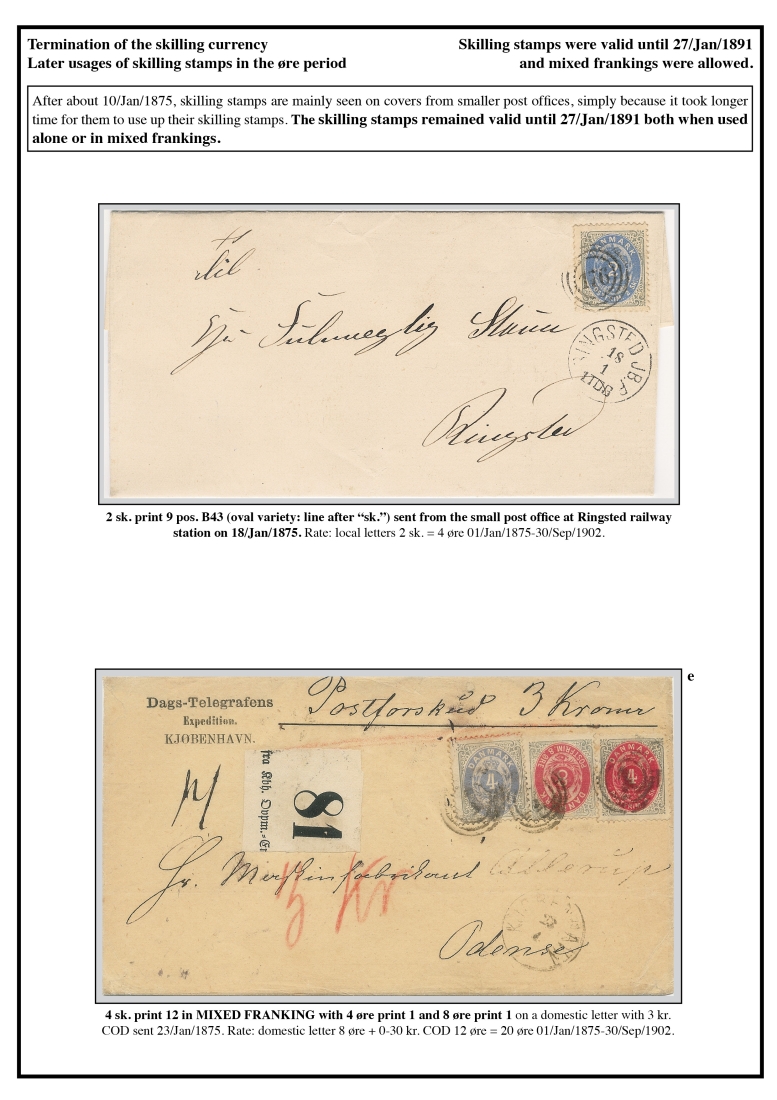 Termination of the skilling currency
Skilling stamps were valid until 27/Jan/1891
Later usages of skilling stamps in the øre period
and mixed frankings were allowed.
After about 10/Jan/1875, skilling stamps are mainly seen on covers from smaller post offices, simply because it took longer
time for them to use up their skilling stamps. The skilling stamps remained valid until 27/Jan/1891 both when used
alone or in mixed frankings.
DANMARK
2
Til
Ringsted
RINGSTED JB.P.
18
1
2 sk. print 9 pos. B43 (oval variety: line after “sk.”) sent from the small post office at Ringsted railway
station on 18/Jan/1875. Rate: local letters 2 sk. = 4 øre 01/Jan/1875-30/Sep/1902.
e
Dags-Telegrafens
Expedition.
KJØBENHAVN.
Postforskud 3 Kroner
DANMARK
4
8
DANMARK
4
fra Kbh.
81
Hr. Maskinfabrikant
3 Kr
Odense
4 sk. print 12 in MIXED FRANKING with 4 øre print 1 and 8 øre print 1 on a domestic letter with 3 kr.
COD sent 23/Jan/1875. Rate: domestic letter 8 øre + 0-30 kr. COD 12 øre = 20 øre 01/Jan/1875-30/Sep/1902.